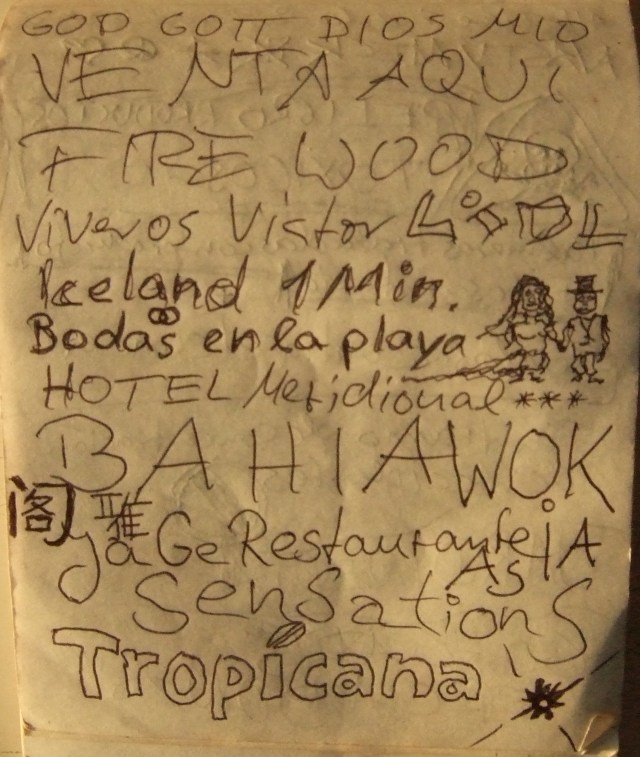 GOD GOTT DIOS MIO
VENTA AQUI
FIRE WOOD
Viveros Victor LiDL
Iceland 1 Min.
Bodas en la playa
HOTEL Meridional ***
BAHIA WOK
阁 雅
ya Ge Restaurante AsiA
Sensations
Tropicana